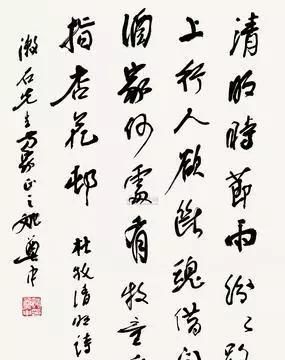 清明時節雨紛々路
上行人欲斷魂借問
酒家何處有牧童
指杏花邨 杜牧清明詩
石先生方家正之 姚奠中